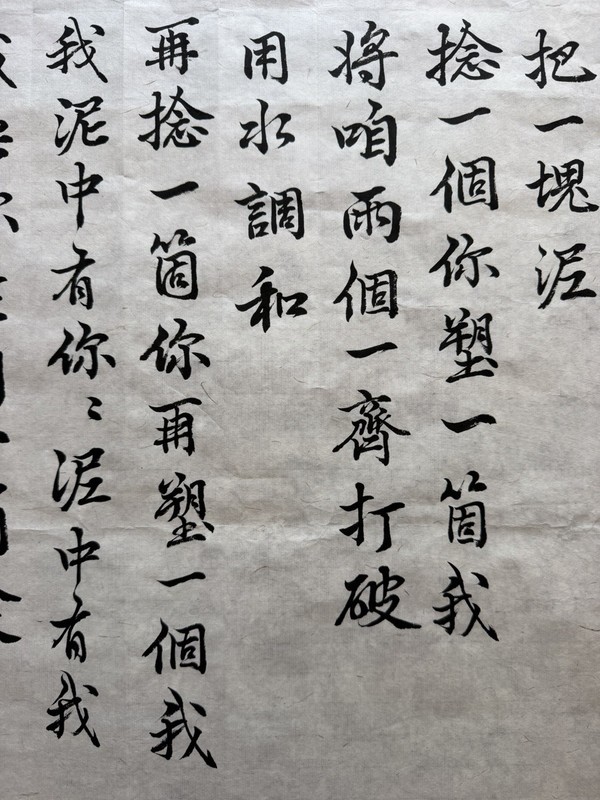 把一塊泥
捻一個你塑一箇我
將咱兩個一齊打破
用水調和
再捻一箇你再塑一個我
我泥中有你〻泥中有我